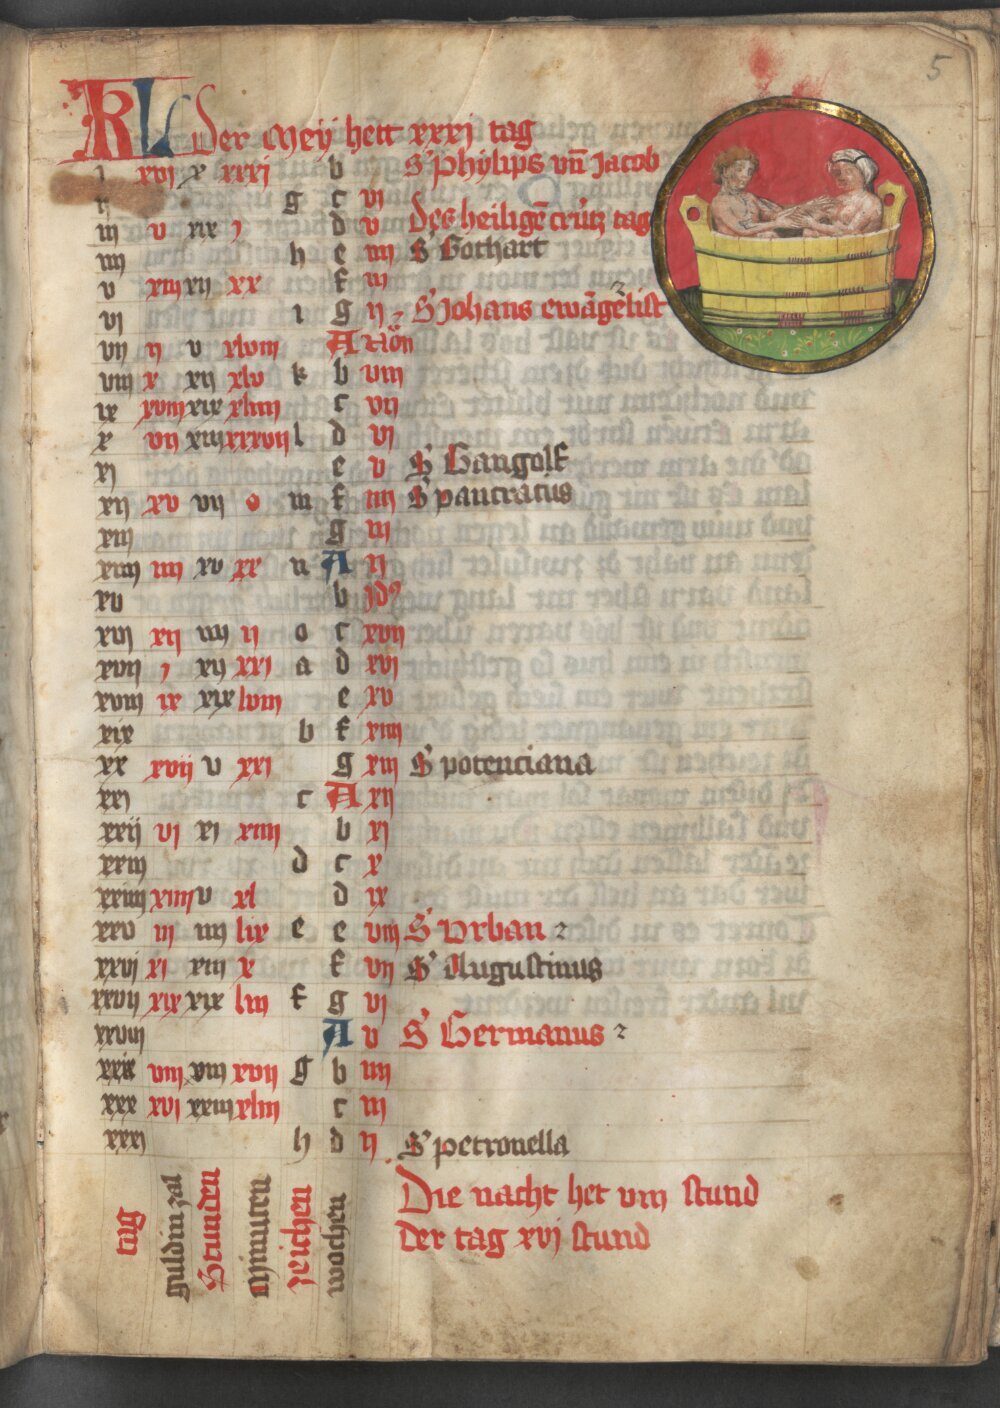 5
KL Der Meÿ hett xxxj tag
i xvi x xxxj b S' Phÿlips vn̄ Jacob
ij g c vi
iij v xix j d v Des heilige᷑ crütz tag
iiij h e iiij S' Gothart
v xiij xij xx f iij
vi i g ij S Johans ewāgelist
vij ij v xlviij A Non̄
viij x xij xlv k b viij
ix xviij xix xliiij c vij
x vij xiij xxxvij l d vj
xj e v S' Gangolf
xij xv vij o m f iiij S' pancracius
xiij g iij
xiiij iiij xv xx n A ij
xv b jdꝰ
xvj xij iiij ij o c xvij
xvij j xij xxi a d xvj
xviij ix xix lviij e xv
xix b f xiiij
xx xvij v xxi g xiij S' potenciana
xxi c A xij
xxij vi xi xiiij b xj
xxiij d c x
xxiiij xiiij v xl d ix
xxv iij iiij lix e e viij S' Vrban
xxvj xi xiij x f vij S' Augustinus
xxvij xix xix liij f g vj
xxviij A v S' Germanus
xxix viij viij xvij g b iiij
xxx xvj xxiij xliij c iij
xxxj h d ij S' petronella
tag
guldin zal
Stunden
Minuten
zeichen
wochen
Die nacht het viij stund
der tag xvj stund